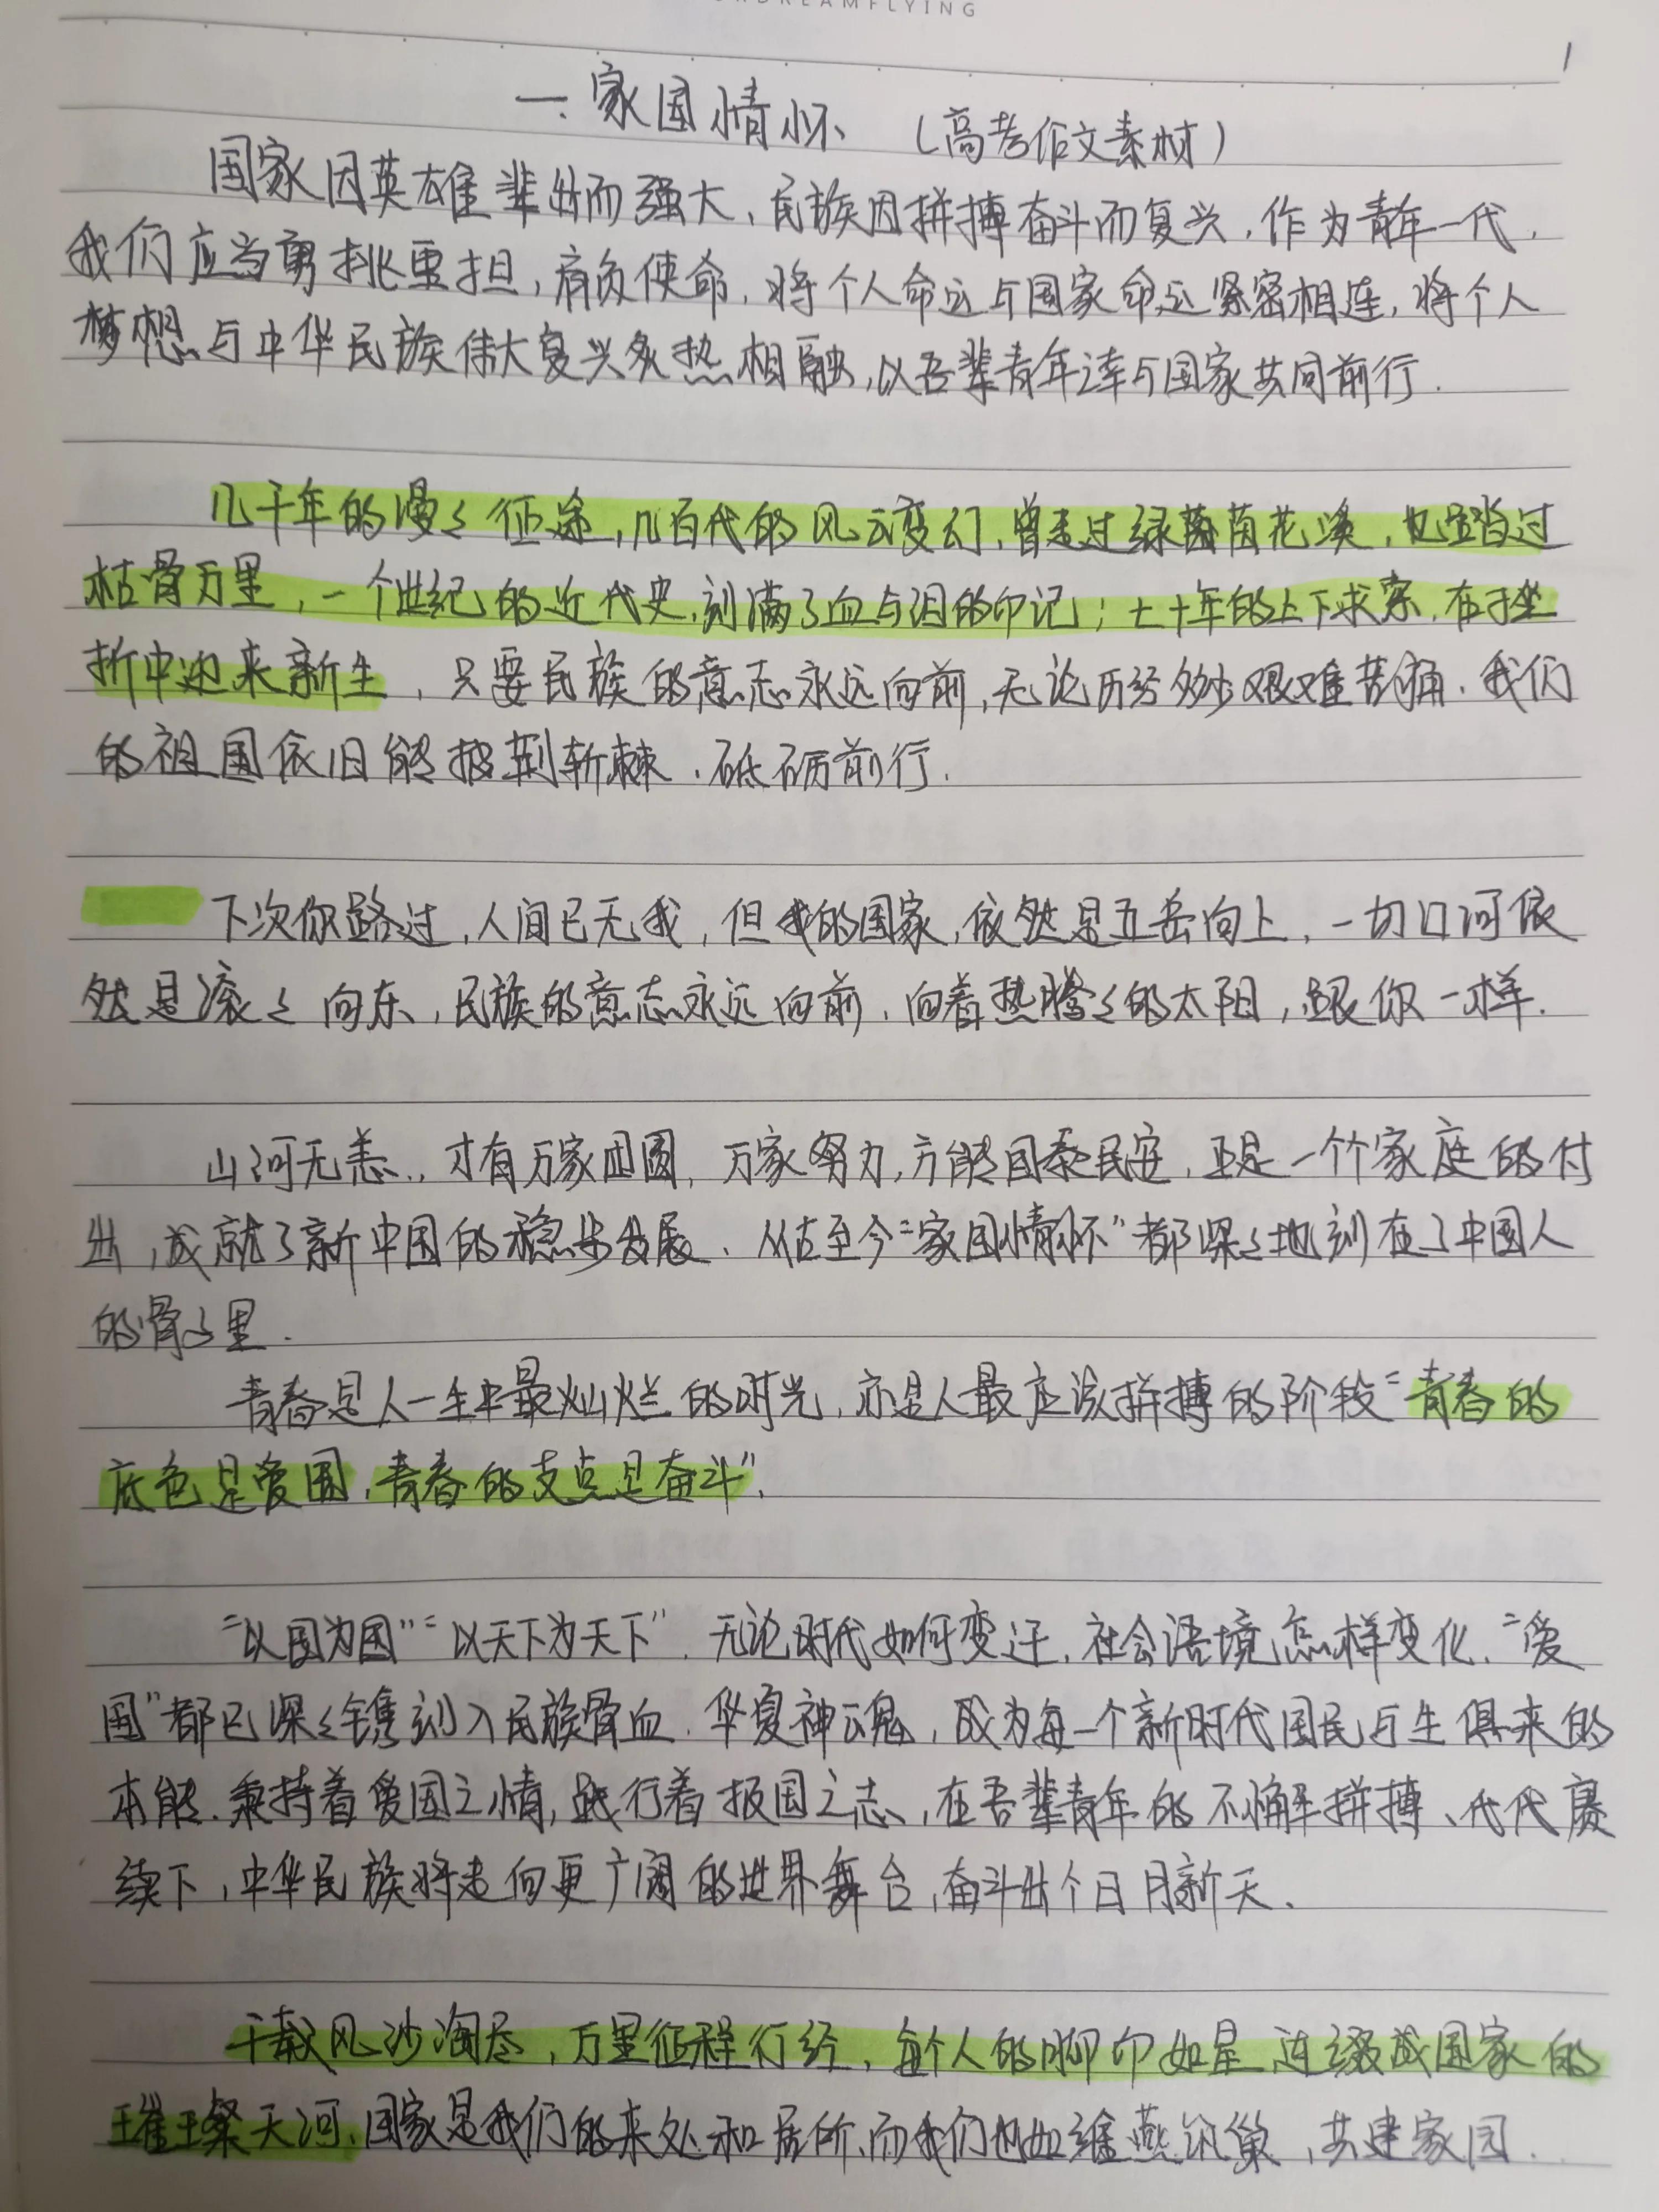 DREAMFLYING
1
一.家国情怀 (高考作文素材)
国家因英雄辈出而强大,民族因拼搏奋斗而复兴,作为青年一代,
我们应当勇挑重担,肩负使命,将个人命运与国家命运紧密相连,将个人
梦想与中华民族伟大复兴炙热相融,以吾辈青年之率与国家共同前行.
几千年的漫々征途,几百代的风云变幻,曾走过绿茵茵花溪,也踏过
枯骨万里,一个世纪的近代史,刻满了血与泪的印记;七十年的上下求索,在挫
折中迎来新生,只要民族的意志永远向前,无论历经多少艰难苦痛,我们
的祖国依旧能披荆斩棘,砥砺前行.
下次你路过,人间已无我,但我的国家,依然是五岳向上,一切江河依
然是滚々向东,民族的意志永远向前,向着热腾々的太阳,跟你一样.
山河无恙,才有万家团圆,万家努力,方能国泰民安,正是一个个家庭的付
出,成就了新中国的稳步发展,从古至今“家国情怀”都深々地刻在了中国人
的骨子里.
青春是人一生中最灿烂的时光,亦是人最应该拼搏的阶段“青春的
底色是爱国,青春的支点是奋斗”.
“以国为国”“以天下为天下”.无论时代如何变迁,社会语境怎样变化,“爱
国”都已深々镌刻入民族骨血,华夏神魂,成为每一个新时代国民与生俱来的
本能.秉持着爱国之情,践行着报国之志,在吾辈青年的不懈拼搏、代代赓
续下,中华民族将走向更广阔的世界舞台,奋斗出个日月新天.
千载风沙淘尽,万里征程行经,每个人的脚印如星,连缀成国家的
璀璨天河,国家是我们的来处和居所,而我们也如雏燕筑巢,共建家园.